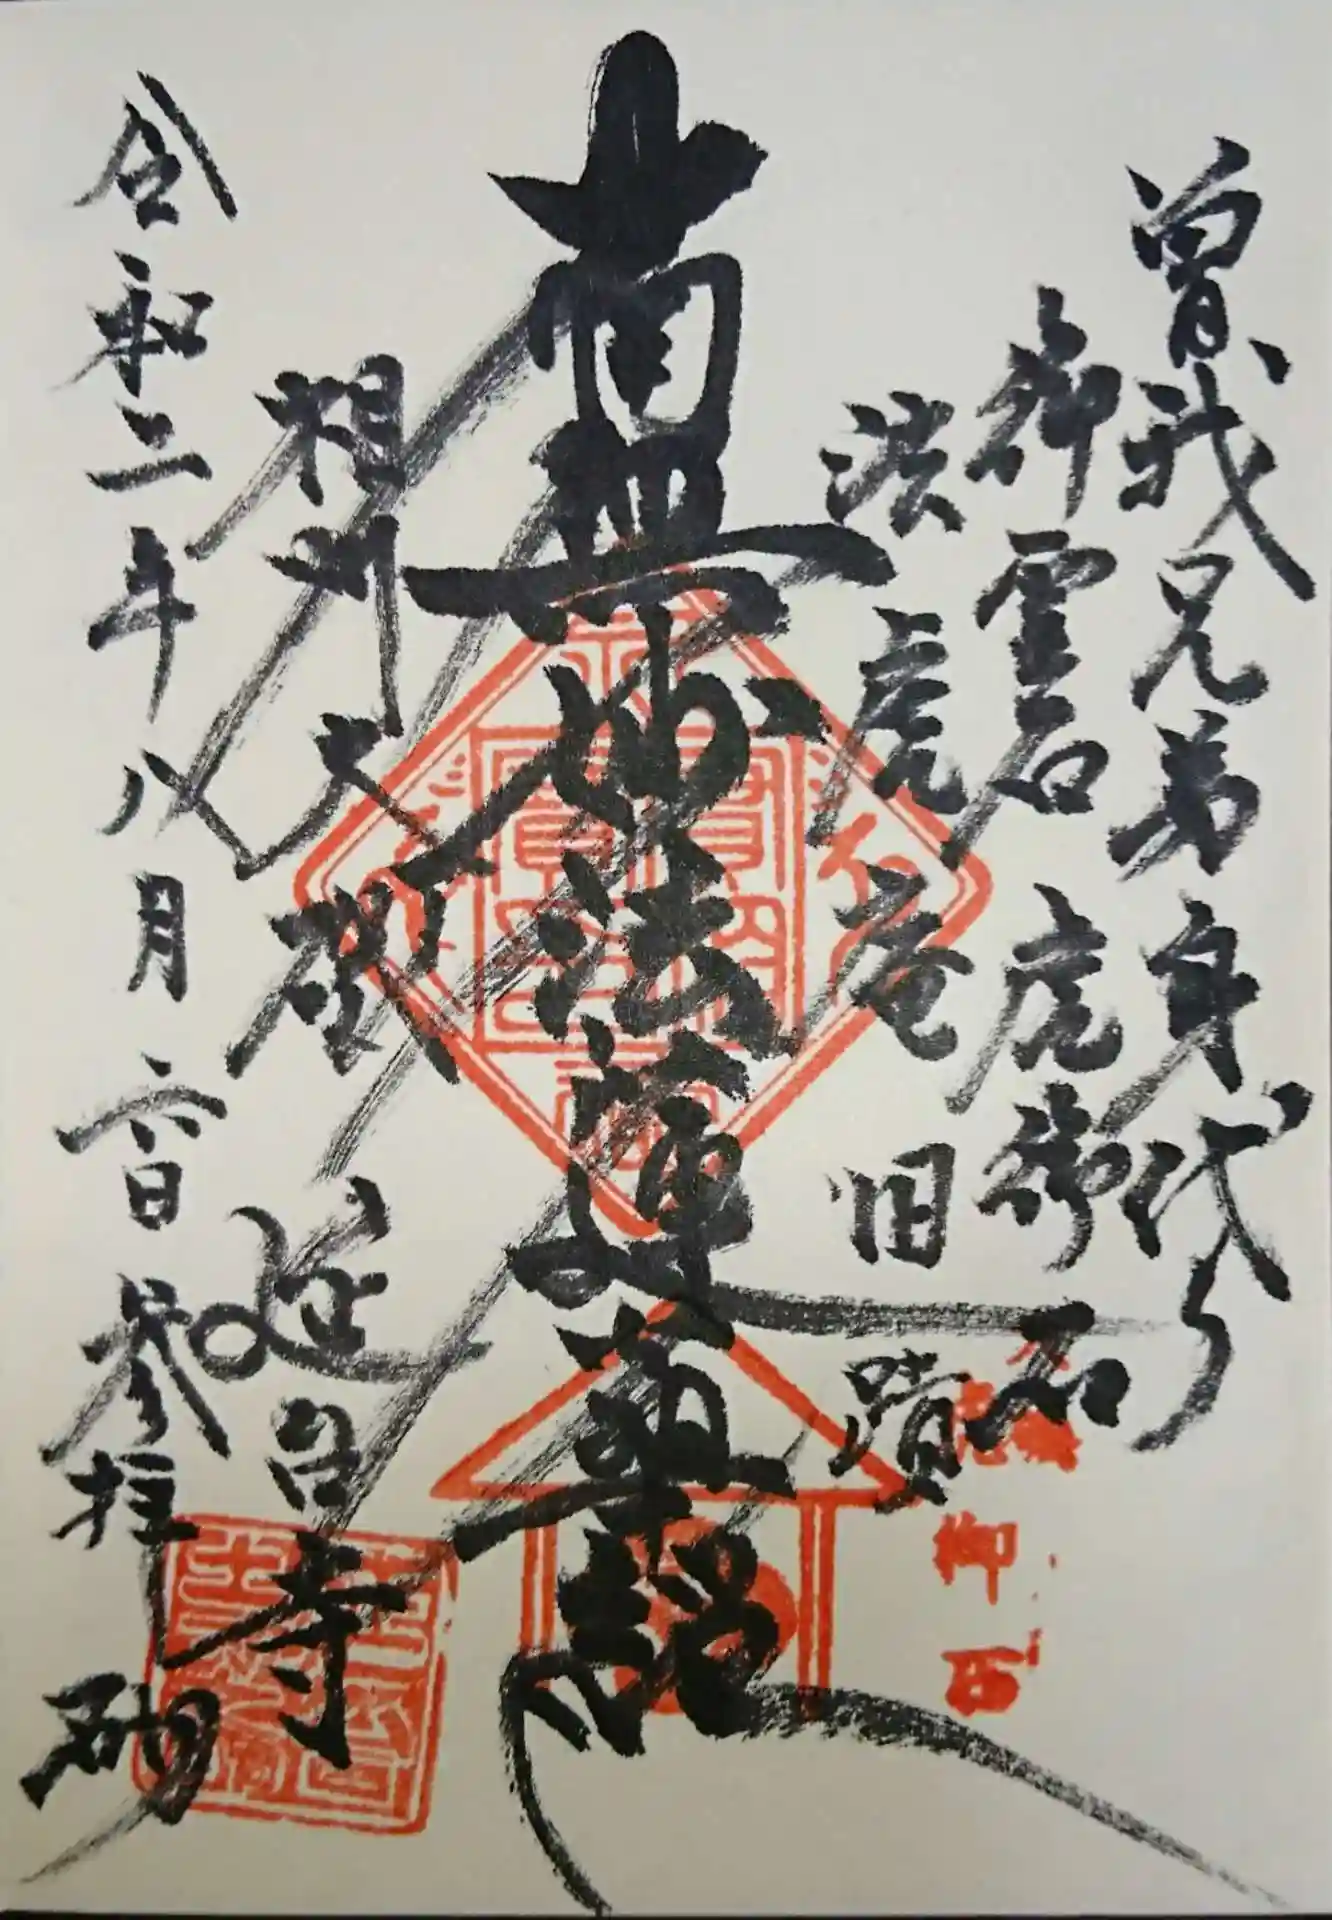 曽我兄弟身代り
御霊石 虎御石
法虎庵旧蹟
南無妙法蓮華経
相州大磯 延台寺
令和二年八月六日 参拝